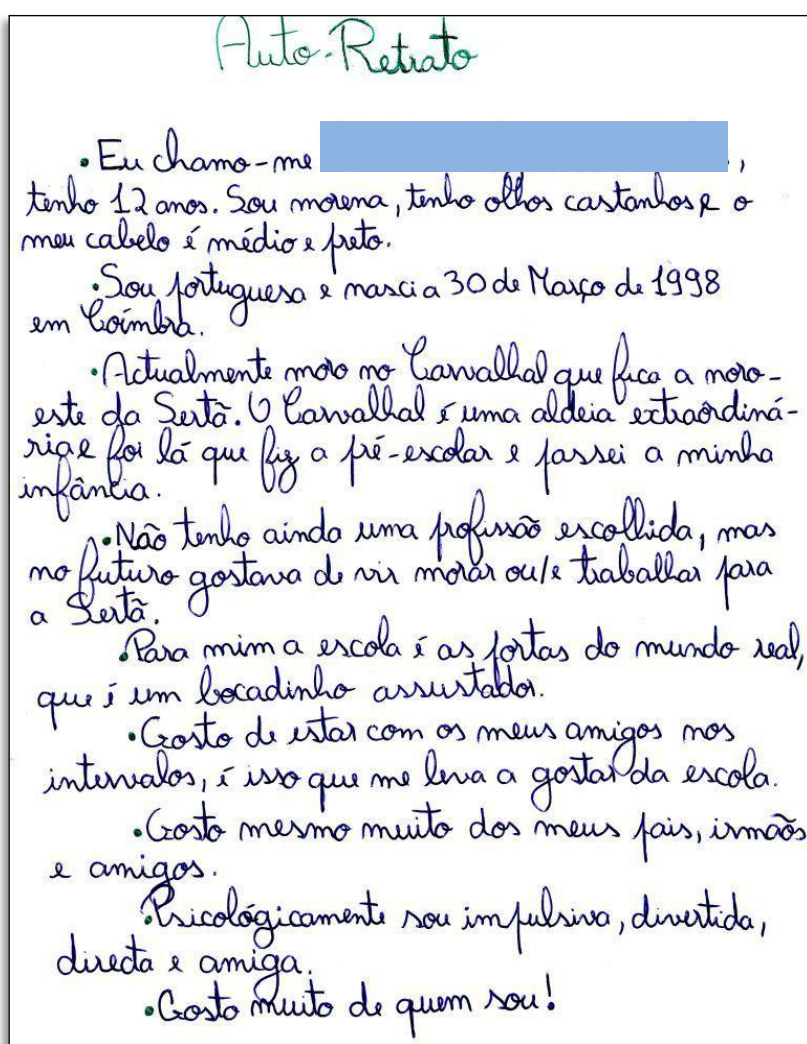 Auto-Retrato
• Eu chamo-me ,
tenho 12 anos. Sou morena, tenho olhos castanhos e o
meu cabelo é médio e preto.
• Sou portuguesa e nasci a 30 de Março de 1998
em Coimbra.
• Actualmente moro no Carvalhal que fica a noro-
este da Sertã. O Carvalhal é uma aldeia extraordiná-
ria e foi lá que fiz a pré-escolar e passei a minha
infância.
• Não tenho ainda uma profissão escolhida, mas
no futuro gostava de vir morar ou/e trabalhar para
a Sertã.
• Para mim a escola é as portas do mundo real,
que é um bocadinho assustador.
• Gosto de estar com os meus amigos nos
intervalos, é isso que me leva a gostar da escola.
• Gosto mesmo muito dos meus pais, irmãos
e amigos.
• Psicológicamente sou impulsiva, divertida,
directa e amiga.
• Gosto muito de quem sou!